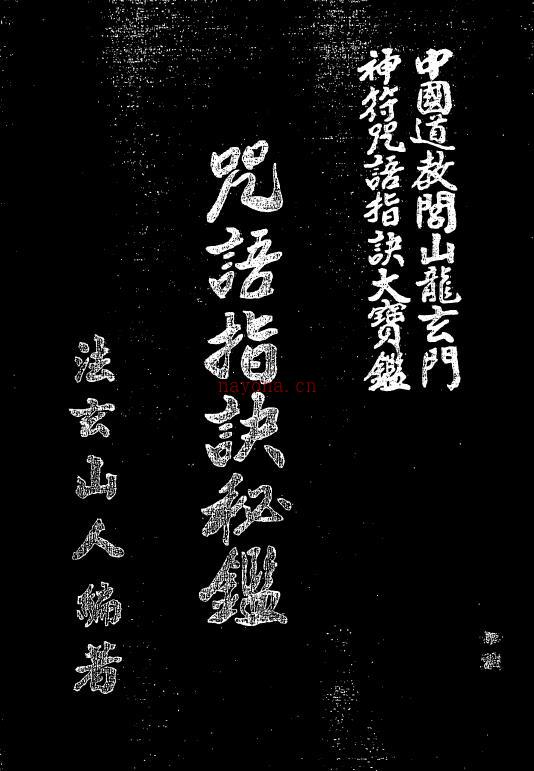 中國道教閭山龍玄門
神符咒語指訣大寶鑑
咒語指訣秘鑑
法玄山人編著
nayona.cn